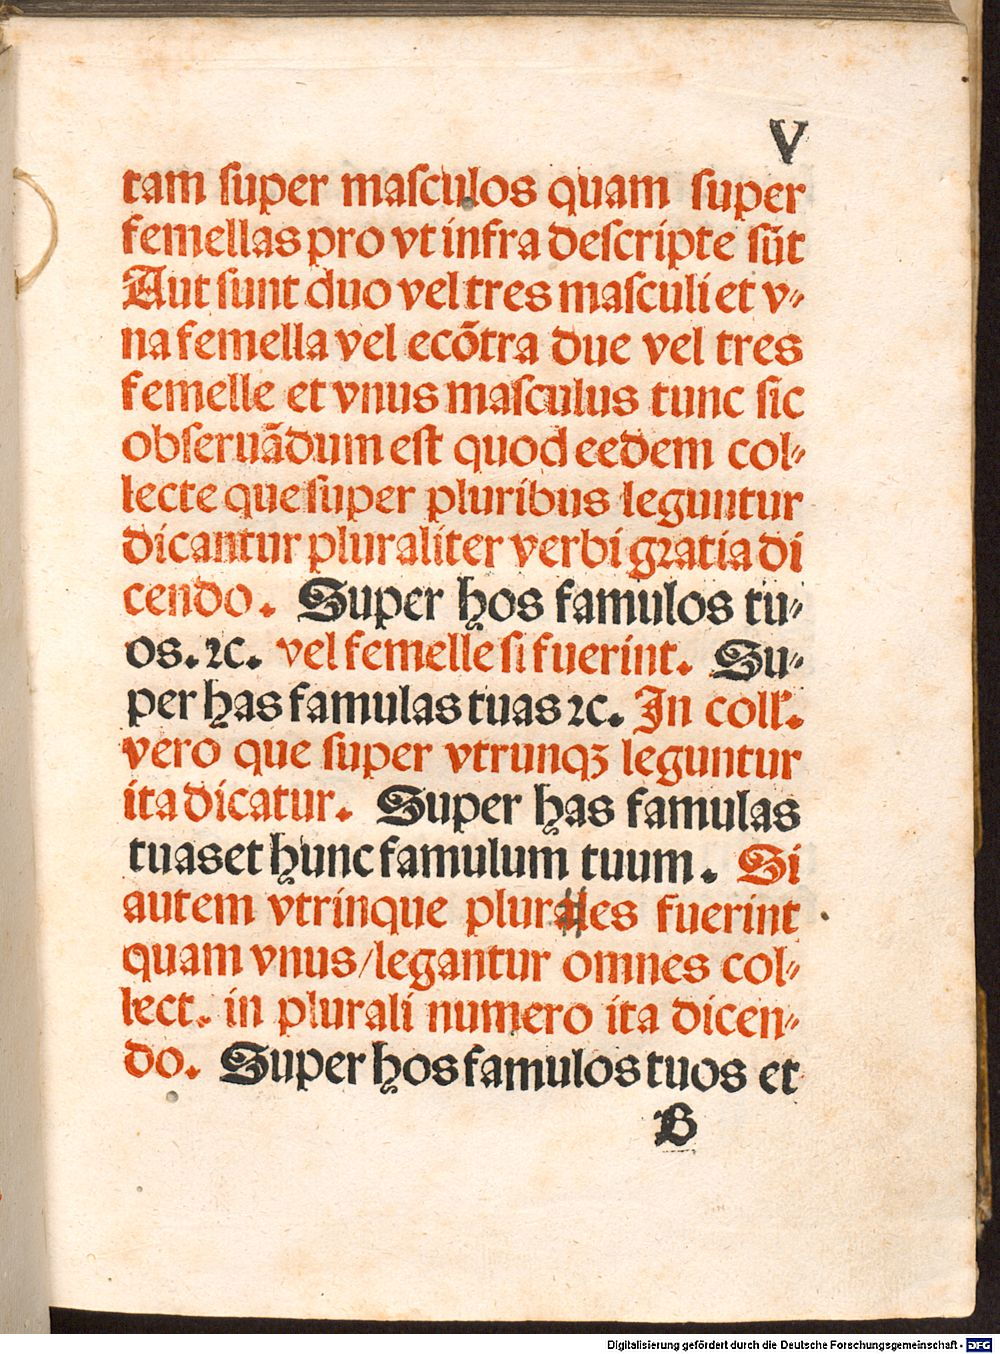 V
tam super masculos quam super
femellas pro vt infra descripte sūt
Aut sunt duo vel tres masculi et v-
na femella vel ecōtra due vel tres
femelle et vnus masculus tunc sic
obseruādum est quod eedem col-
lecte que super pluribus leguntur
dicantur pluraliter verbi gratia di
cendo. Super hos famulos tu-
os. ⁊c. vel femelle si fuerint. Su-
per has famulas tuas ⁊c. In coll'.
vero que super vtrunqꝫ leguntur
ita dicatur. Super has famulas
tuas et hunc famulum tuum. Si
autem vtrinque plurales fuerint
quam vnus/legantur omnes col-
lect. in plurali numero ita dicen-
do. Super hos famulos tuos et
B
Digitalisierung gefördert durch die Deutsche Forschungsgemeinschaft - DFG